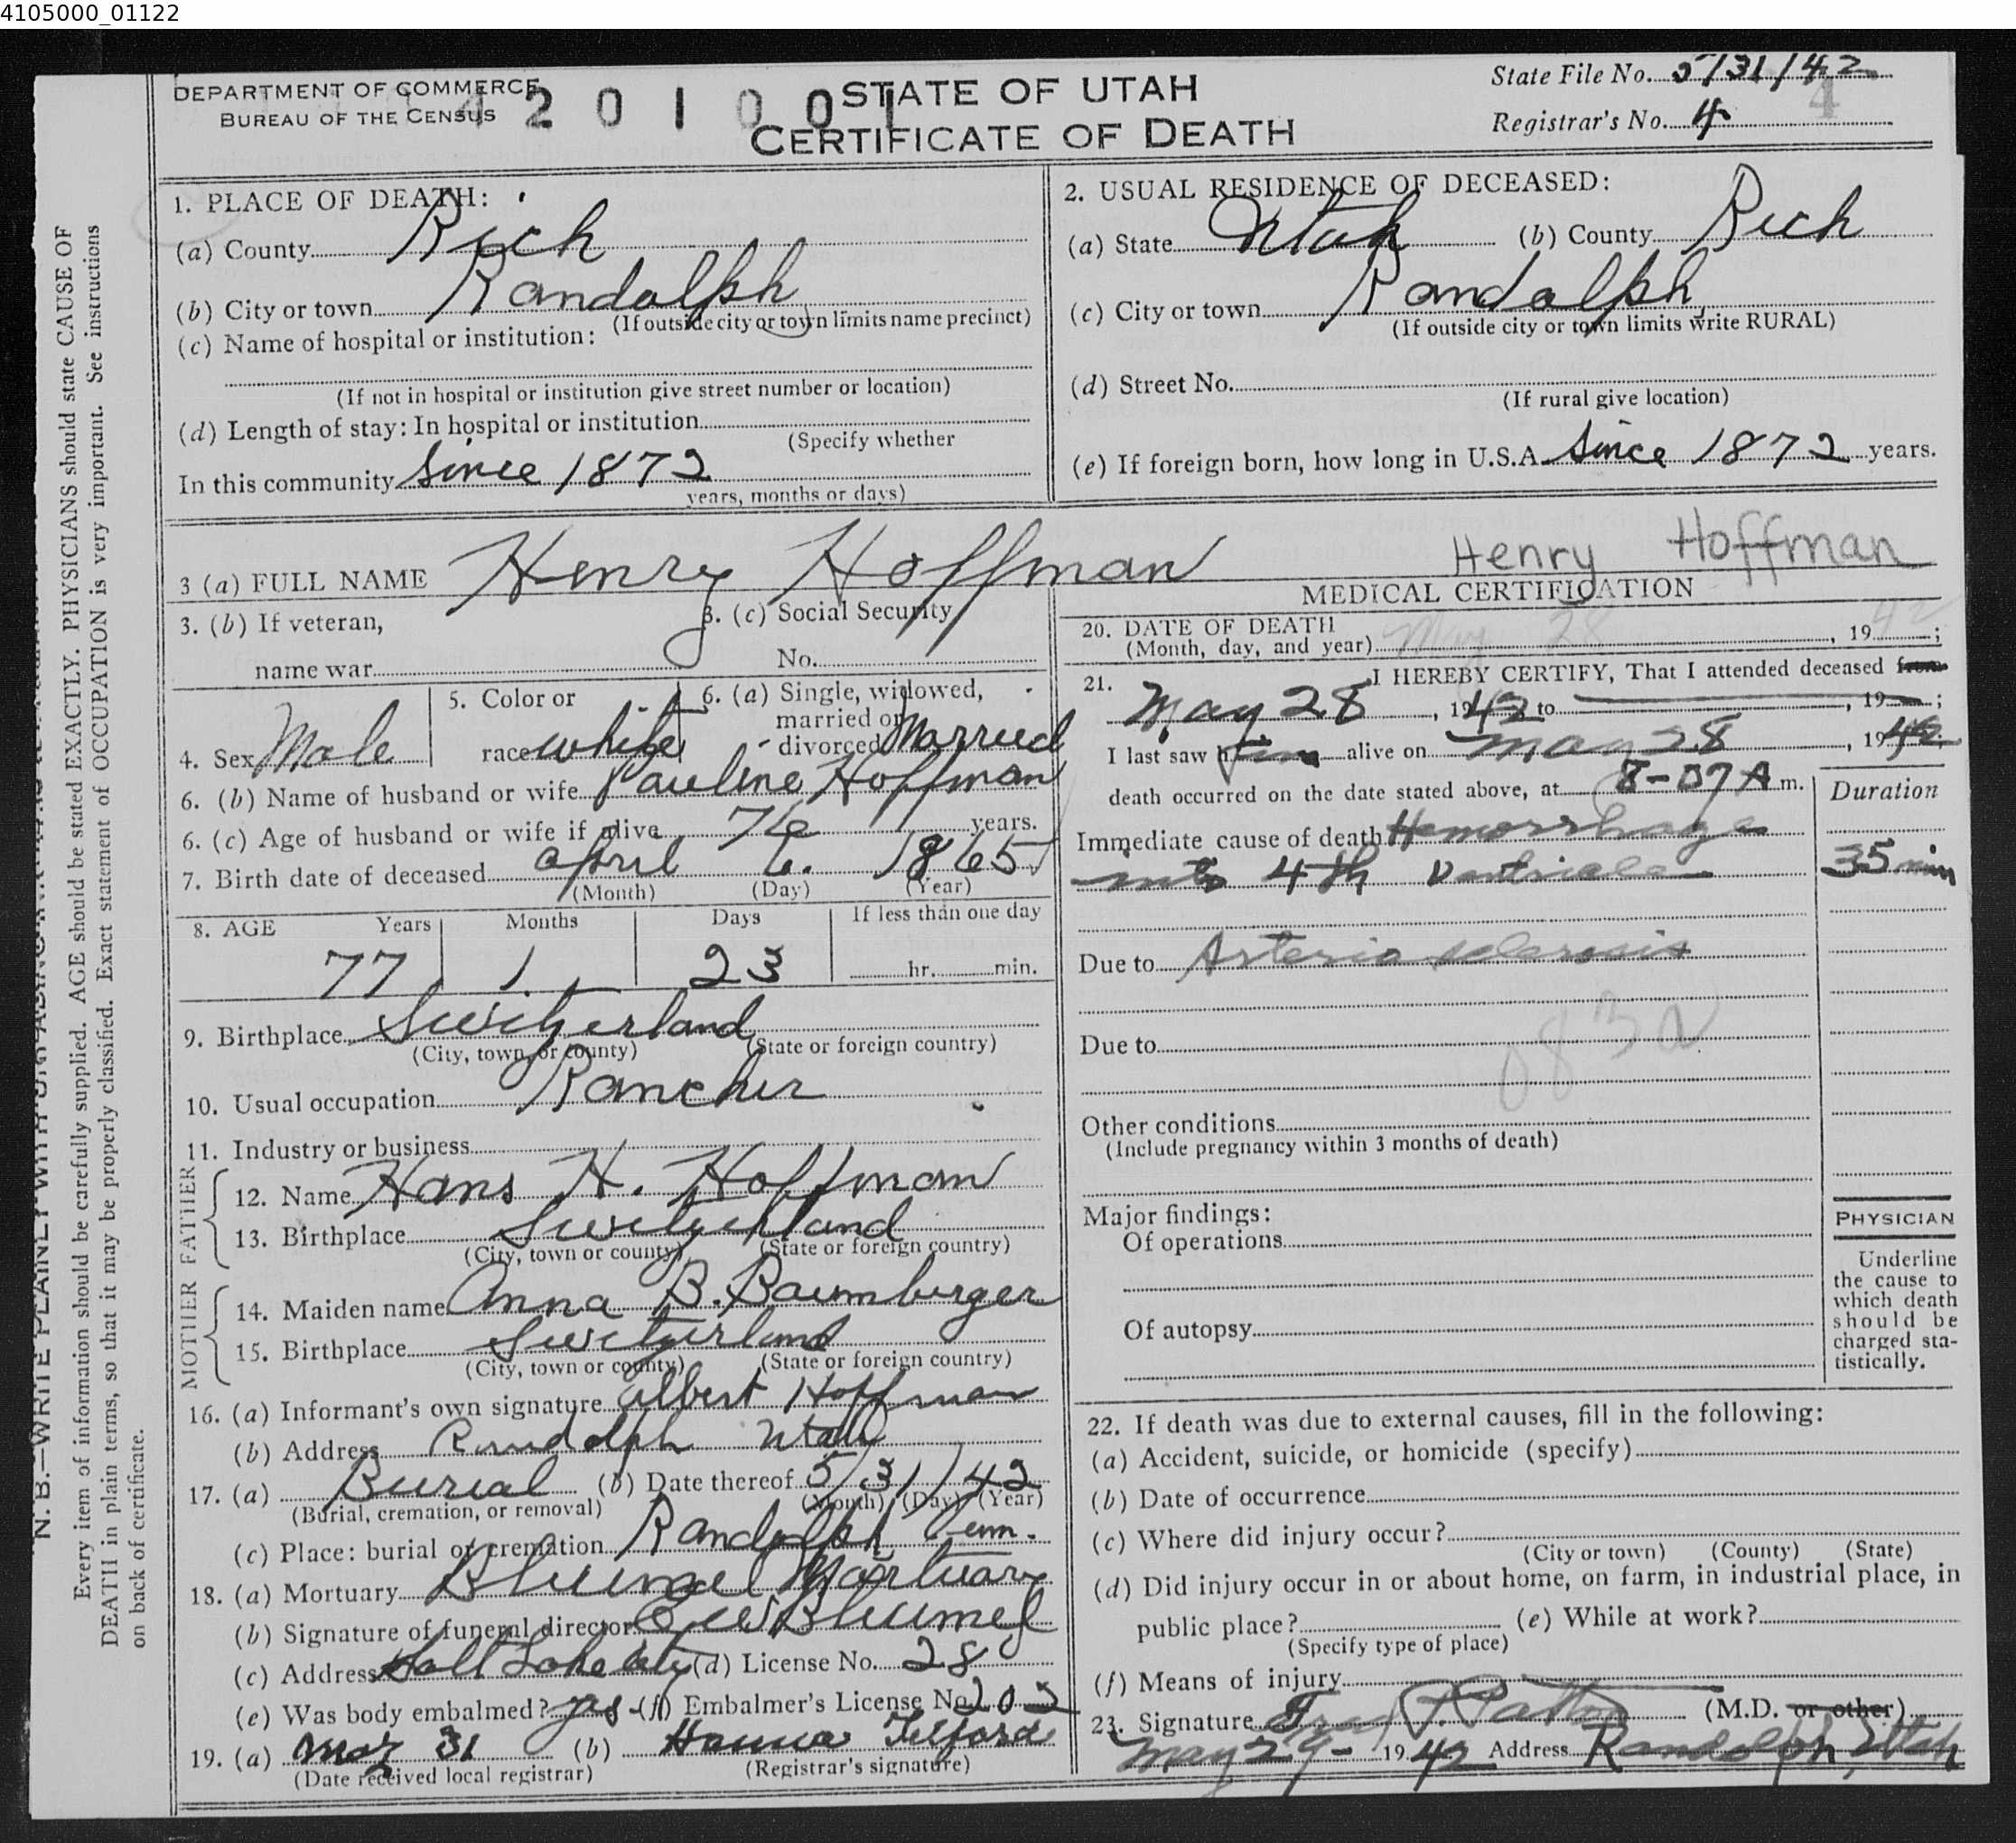 4105000_01122
DEPARTMENT OF COMMERCE
BUREAU OF THE CENSUS
4 2 0 1 0 0 1
STATE OF UTAH
CERTIFICATE OF DEATH
State File No. 5/31/42
Registrar's No. 4 4
1. PLACE OF DEATH:
(a) County Rich
(b) City or town Randolph
(If outside city or town limits name precinct)
(c) Name of hospital or institution:
(If not in hospital or institution give street number or location)
(d) Length of stay: In hospital or institution
(Specify whether
In this community Since 1872
years, months or days)
2. USUAL RESIDENCE OF DECEASED:
(a) State Utah (b) County Rich
(c) City or town Randolph
(If outside city or town limits write RURAL)
(d) Street No.
(If rural give location)
(e) If foreign born, how long in U.S.A. Since 1872 years.
3 (a) FULL NAME Henry Hoffman Henry Hoffman
3. (b) If veteran,
name war
3. (c) Social Security
No.
4. Sex Male
5. Color or
race white
6. (a) Single, widowed,
married or
divorced Married
6. (b) Name of husband or wife Pauline Hoffman
6. (c) Age of husband or wife if alive 76 years.
7. Birth date of deceased April 6. 1865
(Month) (Day) (Year)
8. AGE Years Months Days If less than one day
77 1 23 hr. min.
9. Birthplace Switzerland
(City, town, or county) (State or foreign country)
10. Usual occupation Rancher
11. Industry or business
FATHER
12. Name Hans H. Hoffman
13. Birthplace Switzerland
(City, town or county) (State or foreign country)
MOTHER
14. Maiden name Anna B. Baumberger
15. Birthplace Switzerland
(City, town or county) (State or foreign country)
16. (a) Informant's own signature Albert Hoffman
(b) Address Randolph Utah
17. (a) Burial (b) Date thereof 5/31/42
(Burial, cremation, or removal) (Month) (Day) (Year)
(c) Place: burial or cremation Randolph Cem.
18. (a) Mortuary Bluemel Mortuary
(b) Signature of funeral director E W Bluemel
(c) Address Salt Lake City (d) License No. 28
(e) Was body embalmed? yes (f) Embalmer's License No. 202
19. (a) May 31 (b) Hanna Telford
(Date received local registrar) (Registrar's signature)
MEDICAL CERTIFICATION
20. DATE OF DEATH
(Month, day, and year) May 28, 1942;
21. I HEREBY CERTIFY, That I attended deceased from
May 28, 1942 to , 19 ;
I last saw him alive on May 28, 1942
death occurred on the date stated above, at 8-07 A m.
Duration
Immediate cause of death Hemorrhage
into 4th Ventricle 35 min
Due to Arterio sclerosis
Due to
083a
Other conditions
(Include pregnancy within 3 months of death)
Major findings:
Of operations
Of autopsy
PHYSICIAN
Underline
the cause to
which death
should be
charged sta-
tistically.
22. If death was due to external causes, fill in the following:
(a) Accident, suicide, or homicide (specify)
(b) Date of occurrence
(c) Where did injury occur?
(City or town) (County) (State)
(d) Did injury occur in or about home, on farm, in industrial place, in
public place? (e) While at work?
(Specify type of place)
(f) Means of injury
23. Signature T. Patton (M.D. or other)
May 29- 1942 Address Randolph, Utah
N. B.—WRITE PLAINLY WITH UNFADING INK
Every item of information should be carefully supplied. AGE should be stated EXACTLY. PHYSICIANS should state CAUSE OF
DEATH in plain terms, so that it may be properly classified. Exact statement of OCCUPATION is very important. See instructions
on back of certificate.